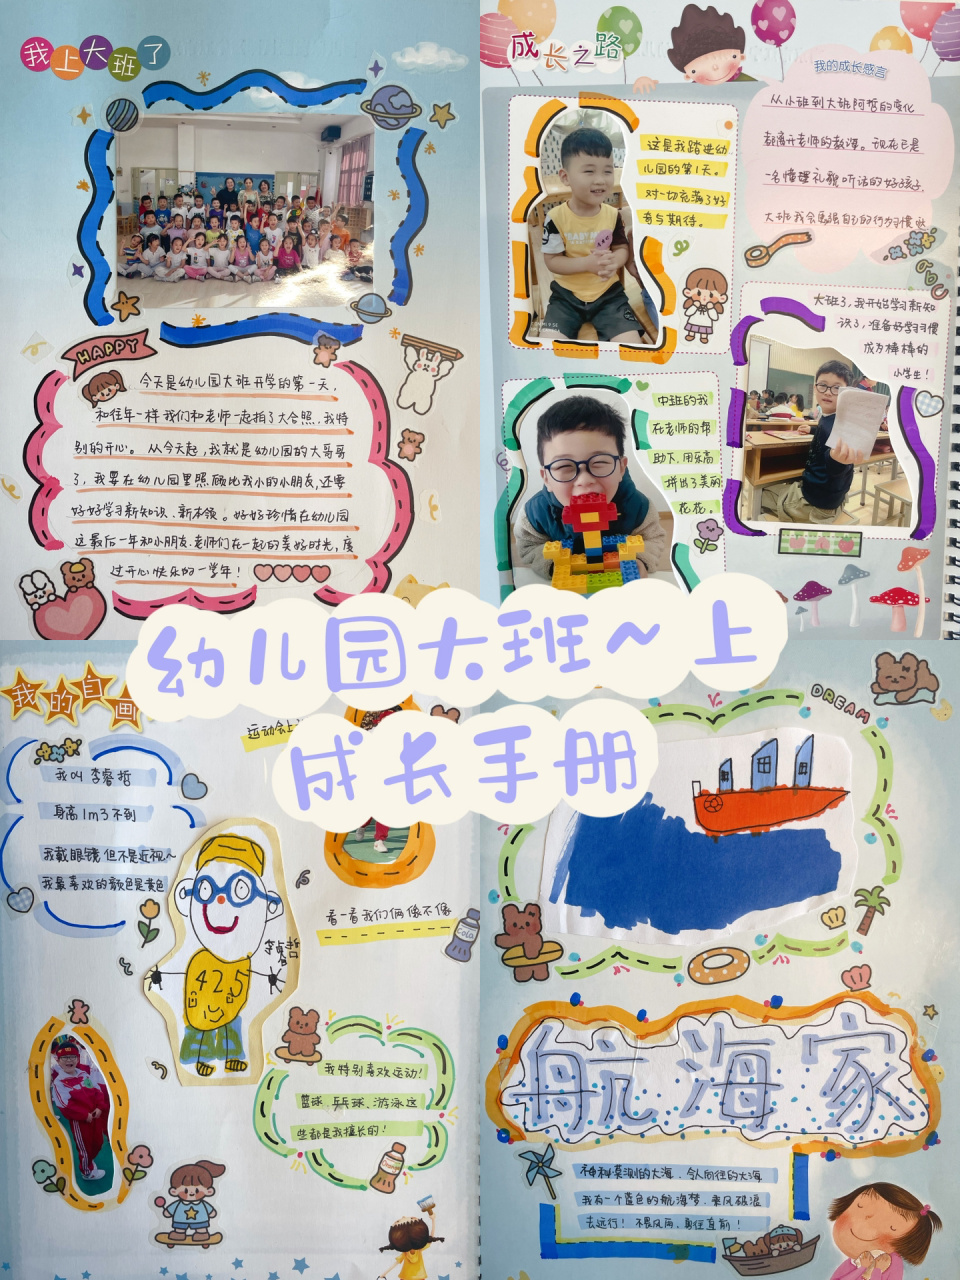 我上大班了
HAPPY
今天是幼儿园大班开学的第一天，
和往年一样我们和老师一起拍了大合照，我特
别的开心。从今天起，我就是幼儿园的大哥哥
了，我要在幼儿园里照顾比我小的小朋友，还要
好好学习新知识、新本领。好好珍惜在幼儿园
这最后一年和小朋友.老师们在一起的美好时光，度
过开心快乐的一学年！
成长之路
我的成长感言
从小班到大班阿哲的变化
都离开老师的教海。现在已是
一名懂理礼貌听话的好孩子.
这是我踏进幼
儿园的第1天。
对一切充满了好
奇与期待。
大班了，我开始学习新知
识了，准备好学习习惯
成为棒棒的
小学生！
中班的我
在老师的帮
助下.用乐高
拼出了美丽
花花。
幼儿园大班~上
成长手册
我的自画
我叫 李睿哲
身高1m3不到
我戴眼镜但不是近视~
我最喜欢的颜色是黄色
425
运动会上
看一看我们俩像不像
Cola
我特别喜欢运动！
篮球、乒乓球、游泳这
些都是我擅长的！
DREAM
航海家
神秘莫测的大海、令人向往的大海
我有一个蓝色的航海梦、乘风破浪
去远行！不畏风雨、勇往直前！